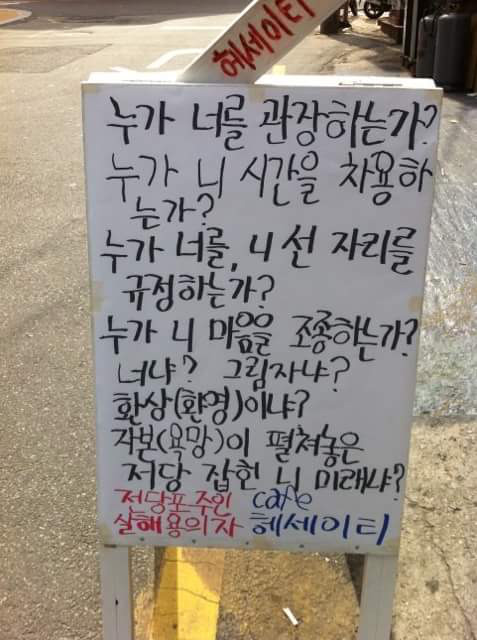 헤세이티
누가 너를 관장하는가?
누가 니 시간을 차용하
는가?
누가 너를, 니 선 자리를
규정하는가?
누가 니 마음을 조종하는가?
너냐? 그림자냐?
환상(환영)이냐?
자본(욕망)이 펼쳐놓은
저당 잡힌 니 미래냐?
전당포주인 cafe
살해용의자 헤세이티